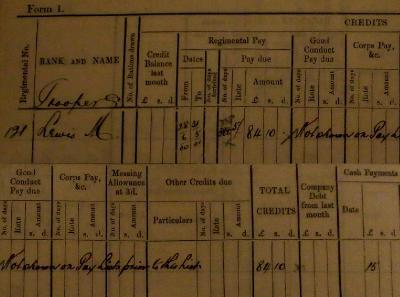 Form 1.
CREDITS
Regimental No.
RANK AND NAME
No. of Rations drawn
Credit Balance last month
£ s. d.
Regimental Pay
Dates
From
To
No. of days forfeited
Pay due
No. of days
Rate
Amount
£ s. d.
Good Conduct Pay due
No. of days
Rate
Amount
s. d.
Corps Pay, &c.
No. of days
Rate
Amount
s. d.
Trooper
191 Lewis M. 5/ 84 10 Not shown on Pay
Good Conduct Pay due
No. of days
Rate
Amount
s. d.
Corps Pay, &c.
No. of days
Rate
Amount
s. d.
Messing Allowance at 3d.
No. of days
Amount
s. d.
Other Credits due
Particulars
No. of days
Rate
Amount
s. d.
TOTAL CREDITS
£ s. d.
Company Debt from last month
£ s. d.
Cash Payments
Date
£ s. d.
Not shown on Pay Lists prior to this list 84 10 15